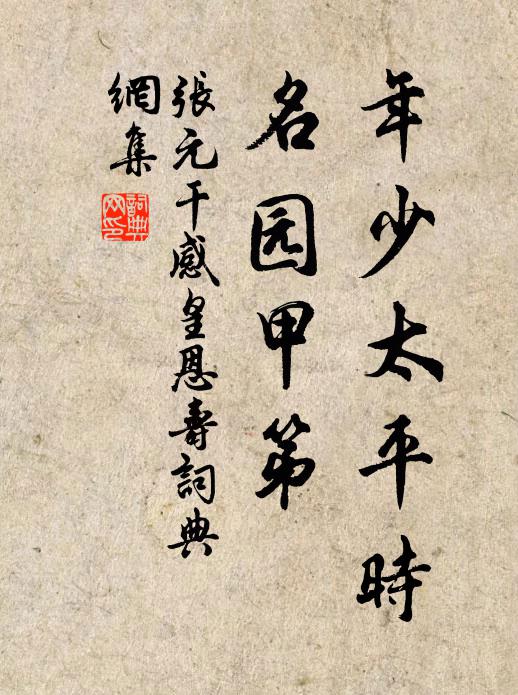 年少太平時
名园甲第
張元干感皇恩壽詞典
網集
詞典
网印